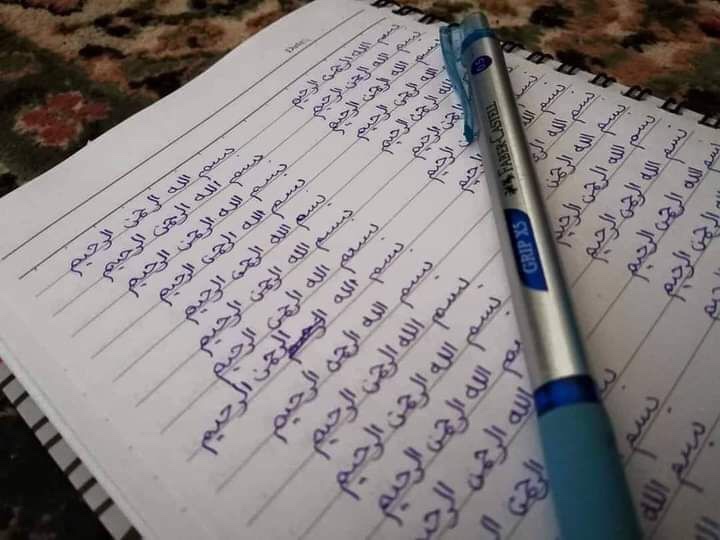 Date:
بسم الله الرحمن الرحيم
بسم الله الرحمن الرحيم
بسم الله الرحمن الرحيم
بسم الله الرحمن الرحيم
بسم الله الرحمن الرحيم
الرحيم
بسم الله الرحمن الرحيم
بسم الله الرحمن الرحيم
بسم الله الرحمن الرحيم
بسم الله الرحمن الرحيم
بسم الله الرحمن الرحيم
بسم الله الرحمن الرحيم
بسم الله الرحمن الرحيم
بسم الله الرحمن الرحيم
بسم الله الرحمن الرحيم
بسم الله الرحمن الرحيم
بسم الله الرحمن الرحيم
بسم الله الرحمن الرحيم
الله الرحمن الرحيم
بسم الله الرحمن الرحيم
بسم الله الرحمن الرحيم
بسم الله الرحمن الرحيم
بسم الله الرحمن الرحيم
الرحيم
بسم
بسم الله
FABER-CASTELL
GRIP X5
0.5